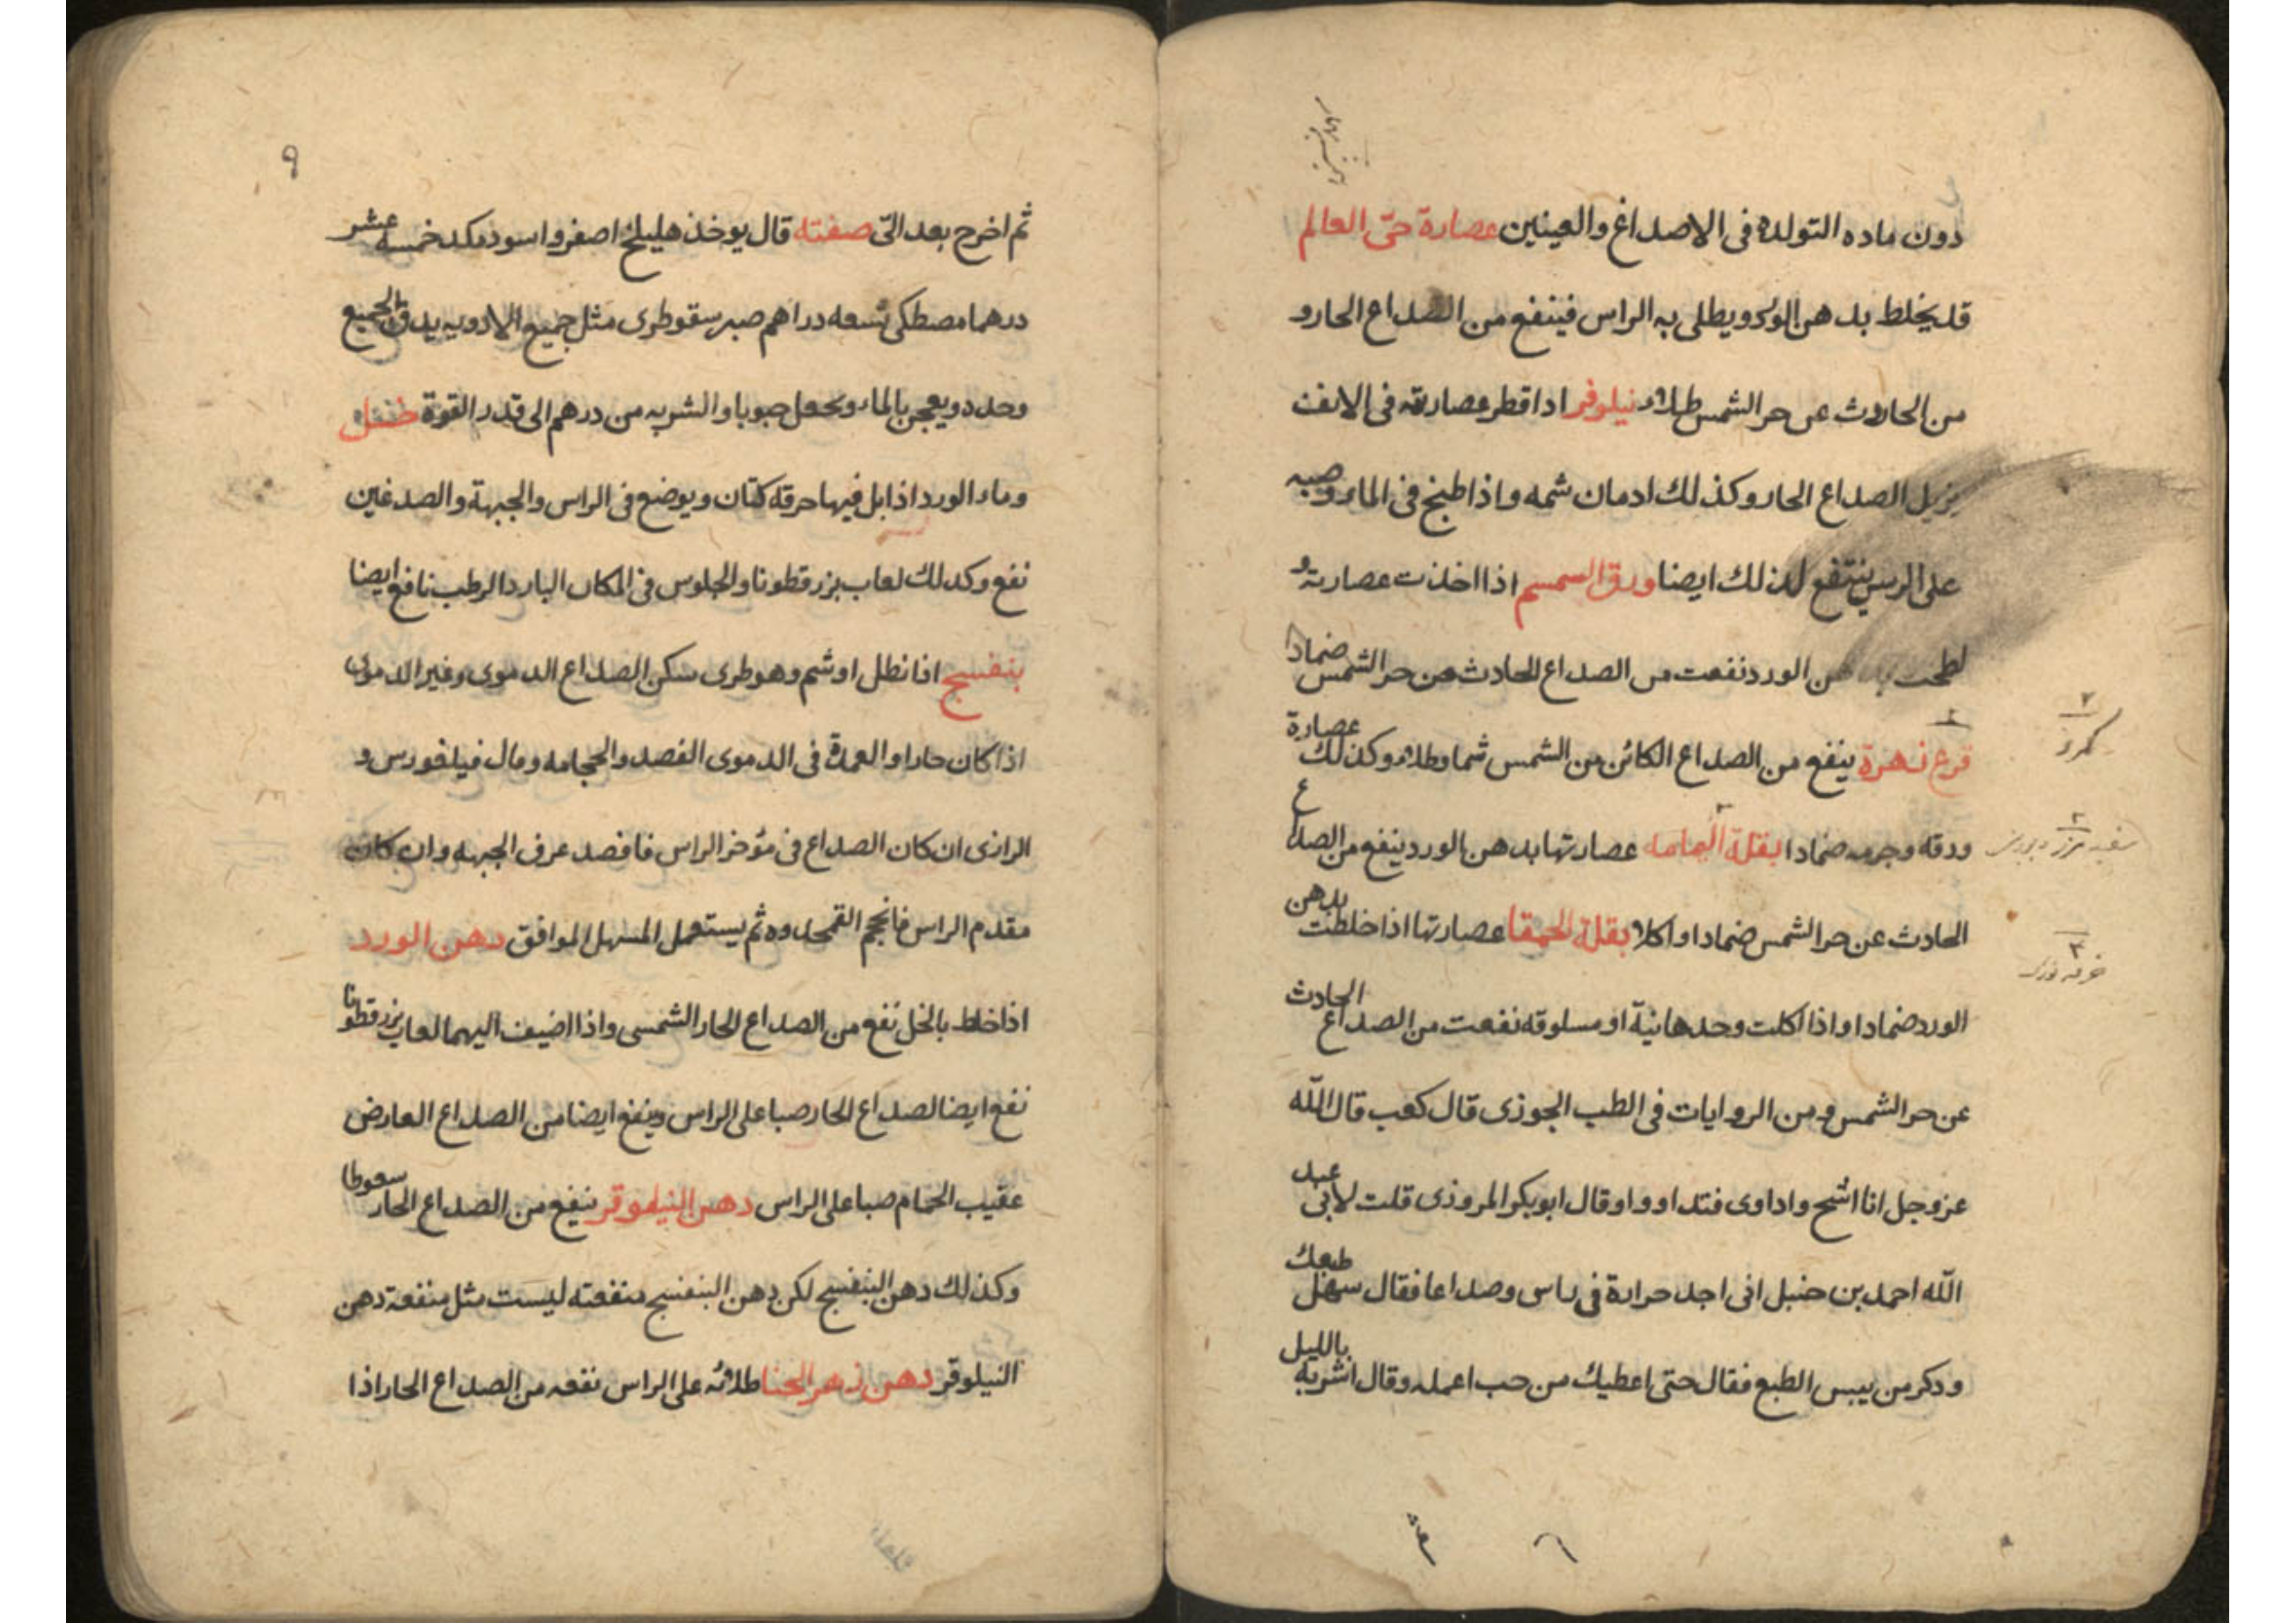 دون ماده التولده فى الاصداغ والعينين عصارة حتى العالم
قد يخلط بدهن الورد ويطلى به الراس فينفع من الصداع الحار و
من الحادث عن حر الشمس طلاء نيلوفر اذا قطر عصارته فى الانف
يزيل الصداع الحار وكذلك ادمان شمه واذا طبخ فى الماء وصبه
على الرس ينتفع لذلك ايضا ورق السمسم اذا اخذت عصارته و
لطخت بدهن الورد نفعت من الصداع الحادث من حر الشمس ضمادا
قرع زهرة ينفع من الصداع الكائن من الشمس شما وطلاء وكذلك عصارة
ورقه وجرمه ضمادا بقلة اليمامه عصارتها بدهن الورد ينفع من الصداع
الحادث عن حر الشمس ضمادا او اكلا بقلة الحمقا عصارتها اذا خلطت بدهن
الورد ضمادا واذا اكلت وحدها نيئة او مسلوقه نفعت من الصداع الحادث
عن حر الشمس ومن الروايات فى الطب الجوزى قال كعب قال الله
عز وجل انا اشح واداوى فتداووا وقال ابو بكر المروذى قلت لابى عبد
الله احمد بن حنبل انى اجد حرارة فى راسى وصداعا فقال سهل طبعك
ودكر من يبس الطبع فقال حتى اعطيك من حب اعمله وقال اشربه بالليل
٩
ثم اخرج بعد التى صفته قال يوخذ هليلج اصفر واسود مكد خمسه عشر
درهما مصطكى تسعه دراهم صبر سقوطرى مثل جميع الادويه يدق الجميع
وحده ويعجن بالماء ويجعل حبوبا والشربه من درهم الى قدر القوة خل
وماء الورد اذا بل فيها خرقه كتان ويوضع فى الراس والجبهة والصدغين
نفع وكدلك لعاب بزر قطونا والجلوس فى المكان البارد الرطب نافع ايضا
بنفسج اذا نطل او شم وهو طرى سكن الصداع الدموى وغير الدموى
اذا كان حارا والعمدة فى الدموى الفصد والحجامه وقال فيلغورس و
الرازى ان كان الصداع فى مؤخر الراس فافصد عرق الجبهه وان كان
مقدم الراس فاحجم القمحدوه ثم يستعمل المسهل الموافق دهن الورد
اذا خلط بالخل نفع من الصداع الحار الشمسى واذا اضيف اليهما لعاب بزر قطونا
نفع ايضا لصداع الحار صبا على الراس وينفع ايضا من الصداع العارض
عقيب الحمام صبا على الراس دهن النيلوفر ينفع من الصداع الحار سعوطا
وكذلك دهن البنفسج لكن دهن البنفسج منفعته ليست مثل منفعة دهن
النيلوفر دهن زهر الحنا طلائه على الراس نفعه من الصداع الحار اذا